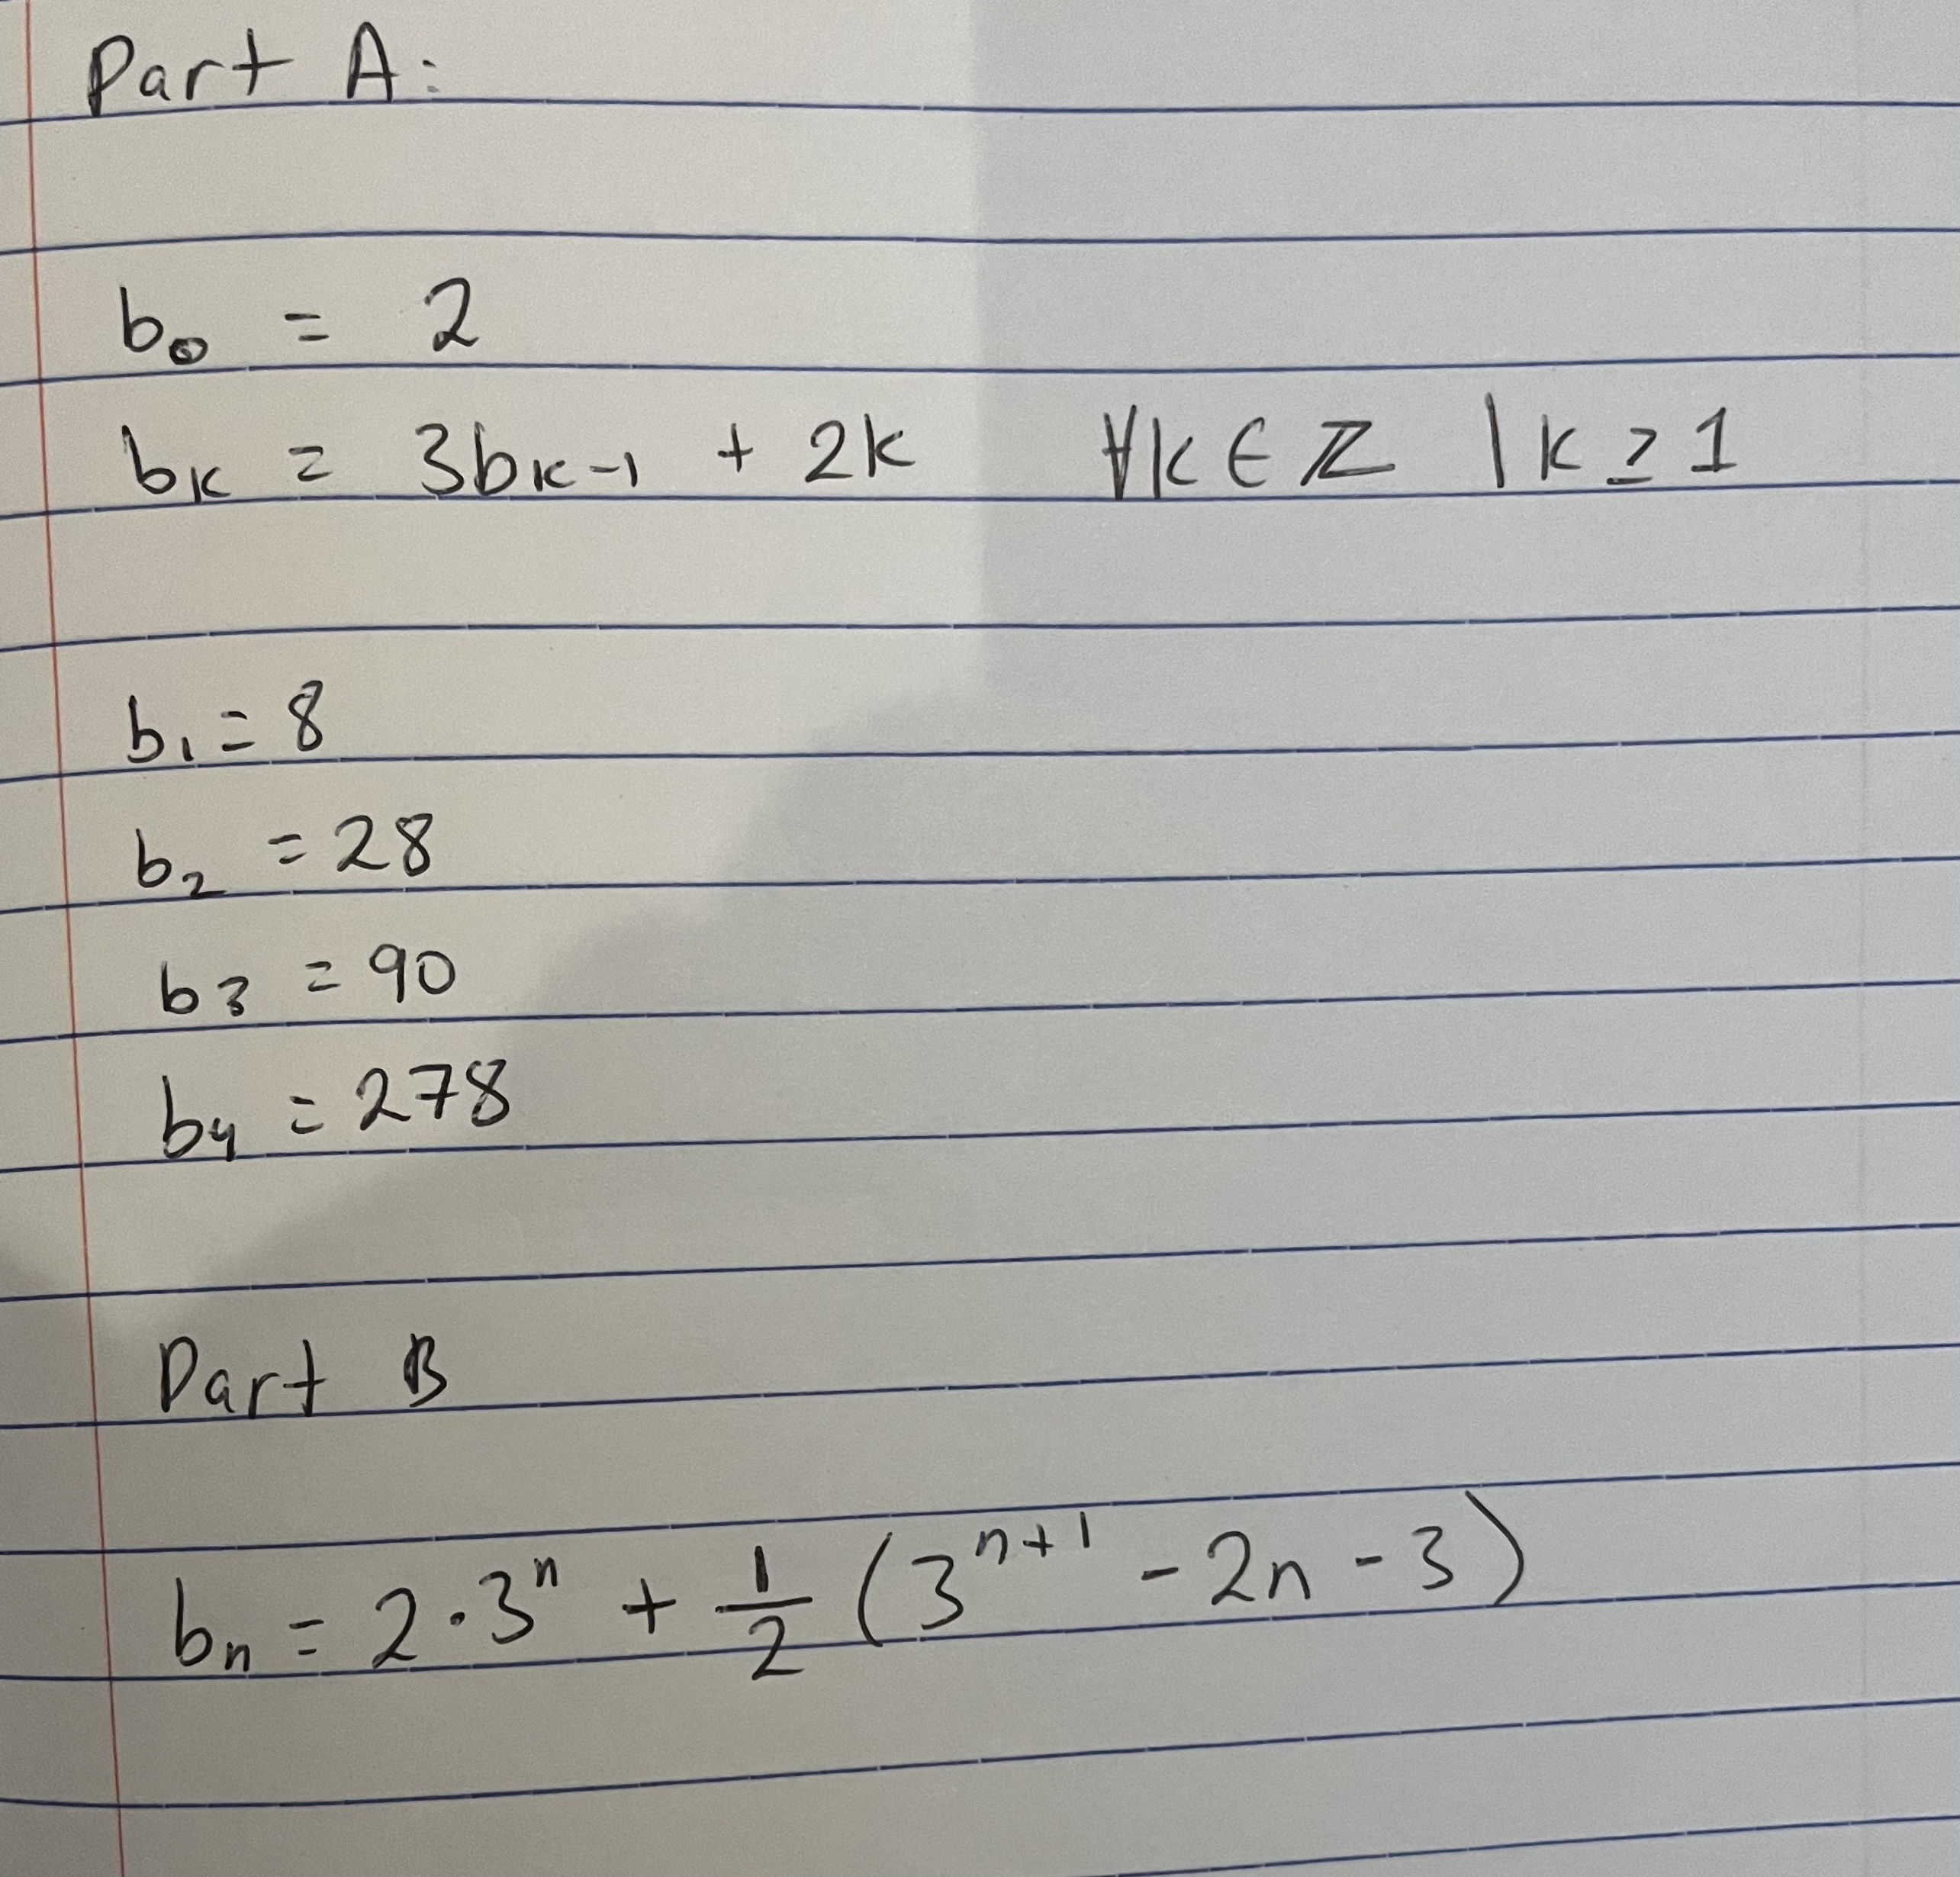 Part A:
b₀ = 2
bₖ = 3bₖ₋₁ + 2k ∀k ∈ ℤ | k ≥ 1
b₁ = 8
b₂ = 28
b₃ = 90
b₄ = 278
Part B
bₙ = 2·3ⁿ + 1/2 (3ⁿ⁺¹ - 2n - 3)